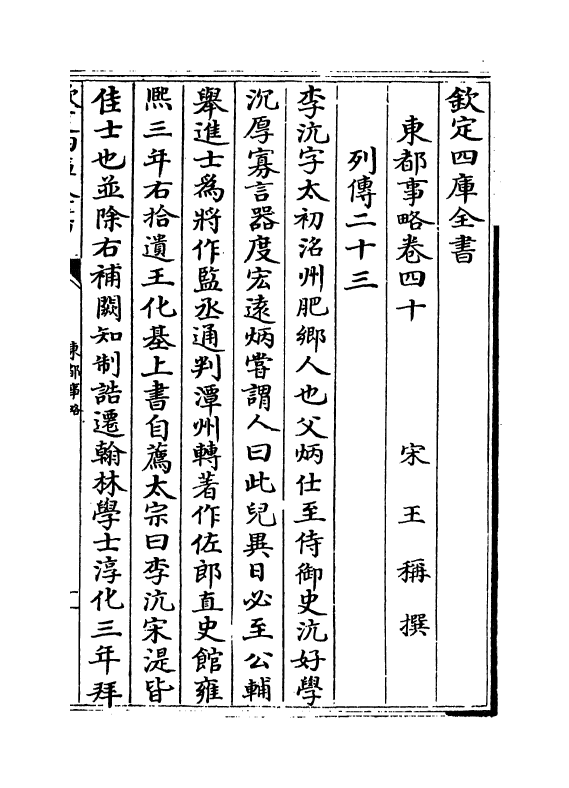 欽定四庫全書
東都事略卷四十
宋王稱撰
列傳二十三
李沆字太初洺州肥鄉人也父炳仕至侍御史沆好學
沉厚寡言器度宏遠炳嘗謂人曰此兒異日必至公輔
舉進士爲將作監丞通判潭州轉著作佐郎直史館雍
熙三年右拾遺王化基上書自薦太宗曰李沆宋湜皆
佳士也並除右補闕知制誥遷翰林學士淳化三年拜
東都事略